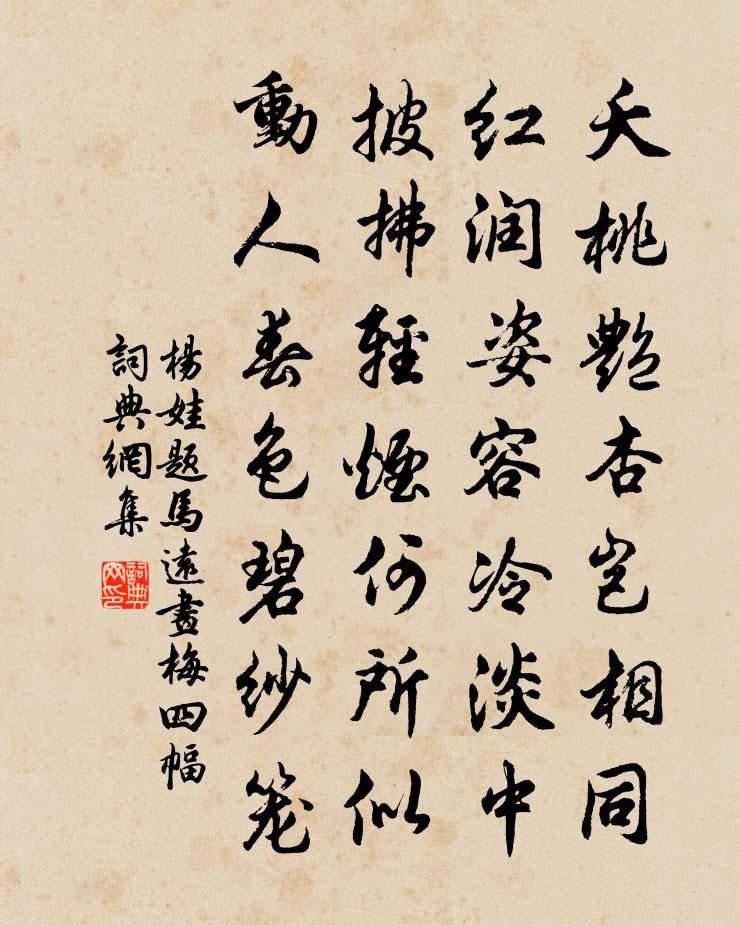 夭桃艷杏岂相同
红润姿容冷淡中
披拂輕煙何所似
動人春色碧纱笼
楊娃題馬遠畫梅四幅
詞典網集
詞典网印